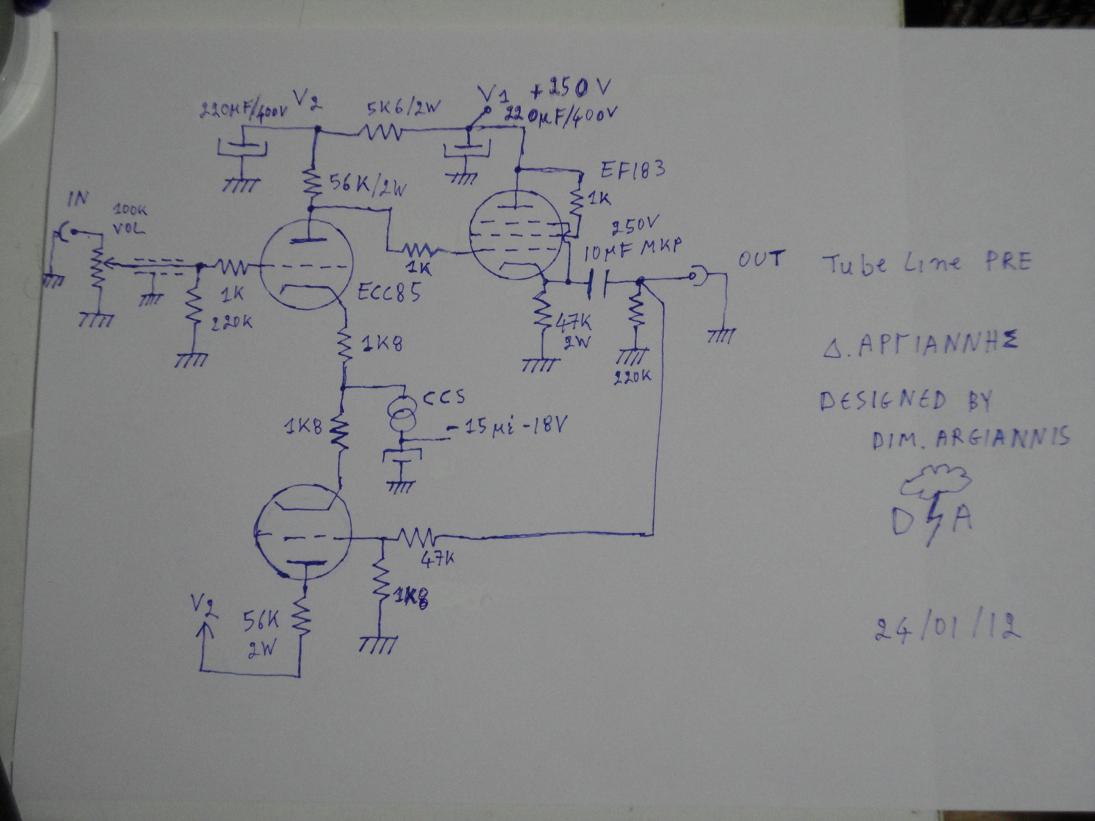 220µF/400V
V2
5K6/2W
V1
+250V
220µF/400V
56K/2W
EF183
1K
250V
10µF MKP
IN
100K
VOL
1K
220K
ECC85
1K
47K
2W
220K
OUT
1K8
CCS
1K8
-15 µέ -18V
47K
1K8
V2
56K
2W
Tube Line PRE
Δ. ΑΡΓΙΑΝΝΗΣ
DESIGNED BY
DIM. ARGIANNIS
D A
24/01/12